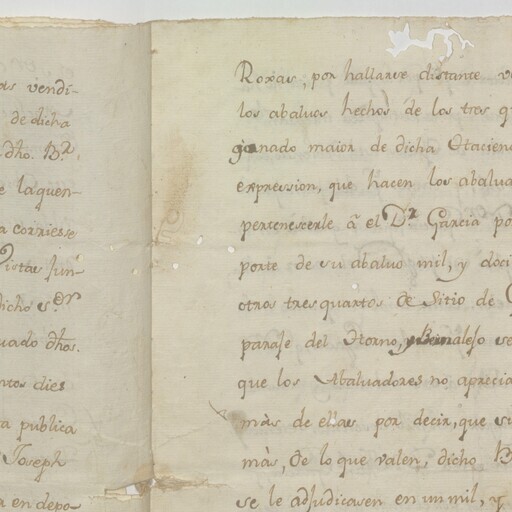 as vendi-
de dicha
dho. B.r,
e laquen-
a corriesse
Vistas Jun-
dicho s.or
uado dhos.
ntos dies
ta publica
Joseph
a en depo-
Roxas, por hallarse distante
los abaluos hechos de los tres q
ganado maior de dicha Otacien
expression, que hacen los abalua
pertenescerle â el D.r Garcia po
porte de su abaluo mil, y doci
otros tres quartos de Sitio de
paraje del Horno, y se
que los Abaluadores no aprecia
màs de ellas por decir, que s
màs, de lo que valen, dicho B
se le adjudicasen en un mil, y